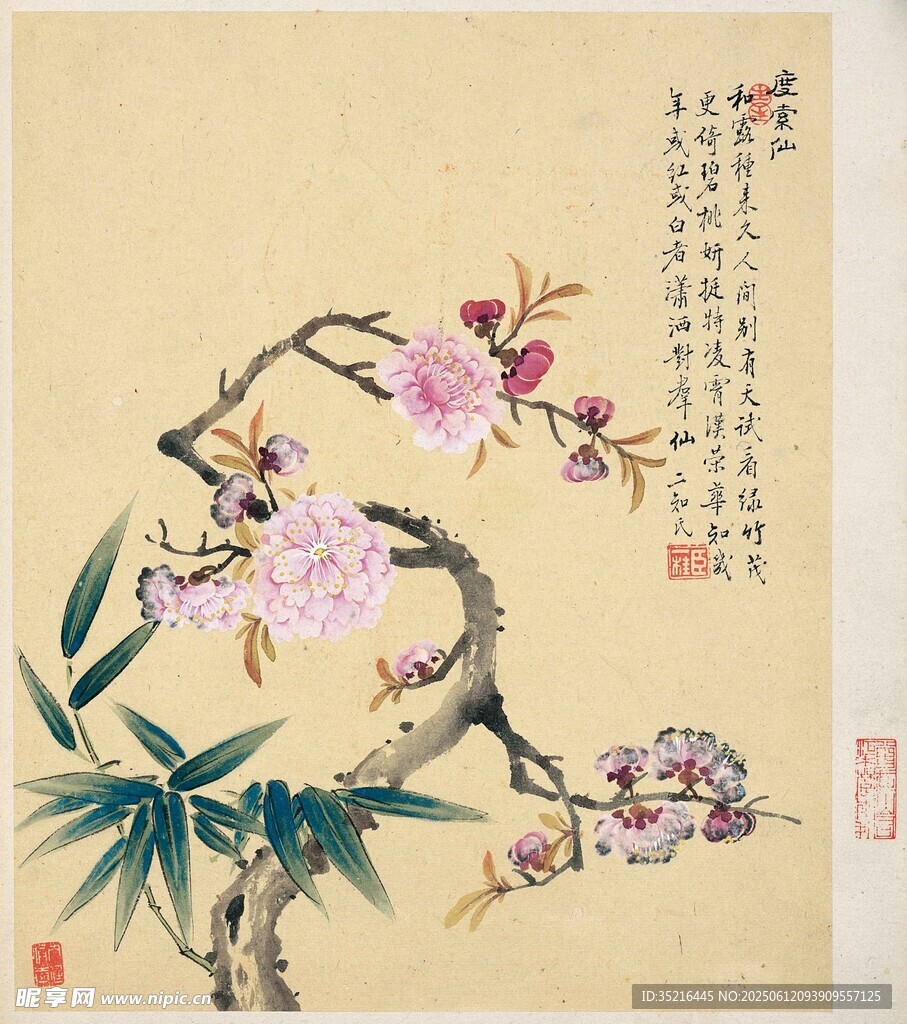 度索仙
和露種来久人間别有天试看緑竹茂
更倚碧桃妍挺特凌霄漢荣華知幾
年或红或白者潇洒對羣仙 二知氏
臣一桂
昵享网 www.nipic.cn
ID:35216445 NO:20250612093909557125